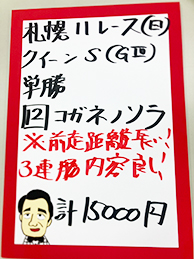 札幌11レース(日)
クイーンS(GⅢ)
単勝
12 コガネノソラ
※前走距離長い!
3連勝内容良い!
計15000円